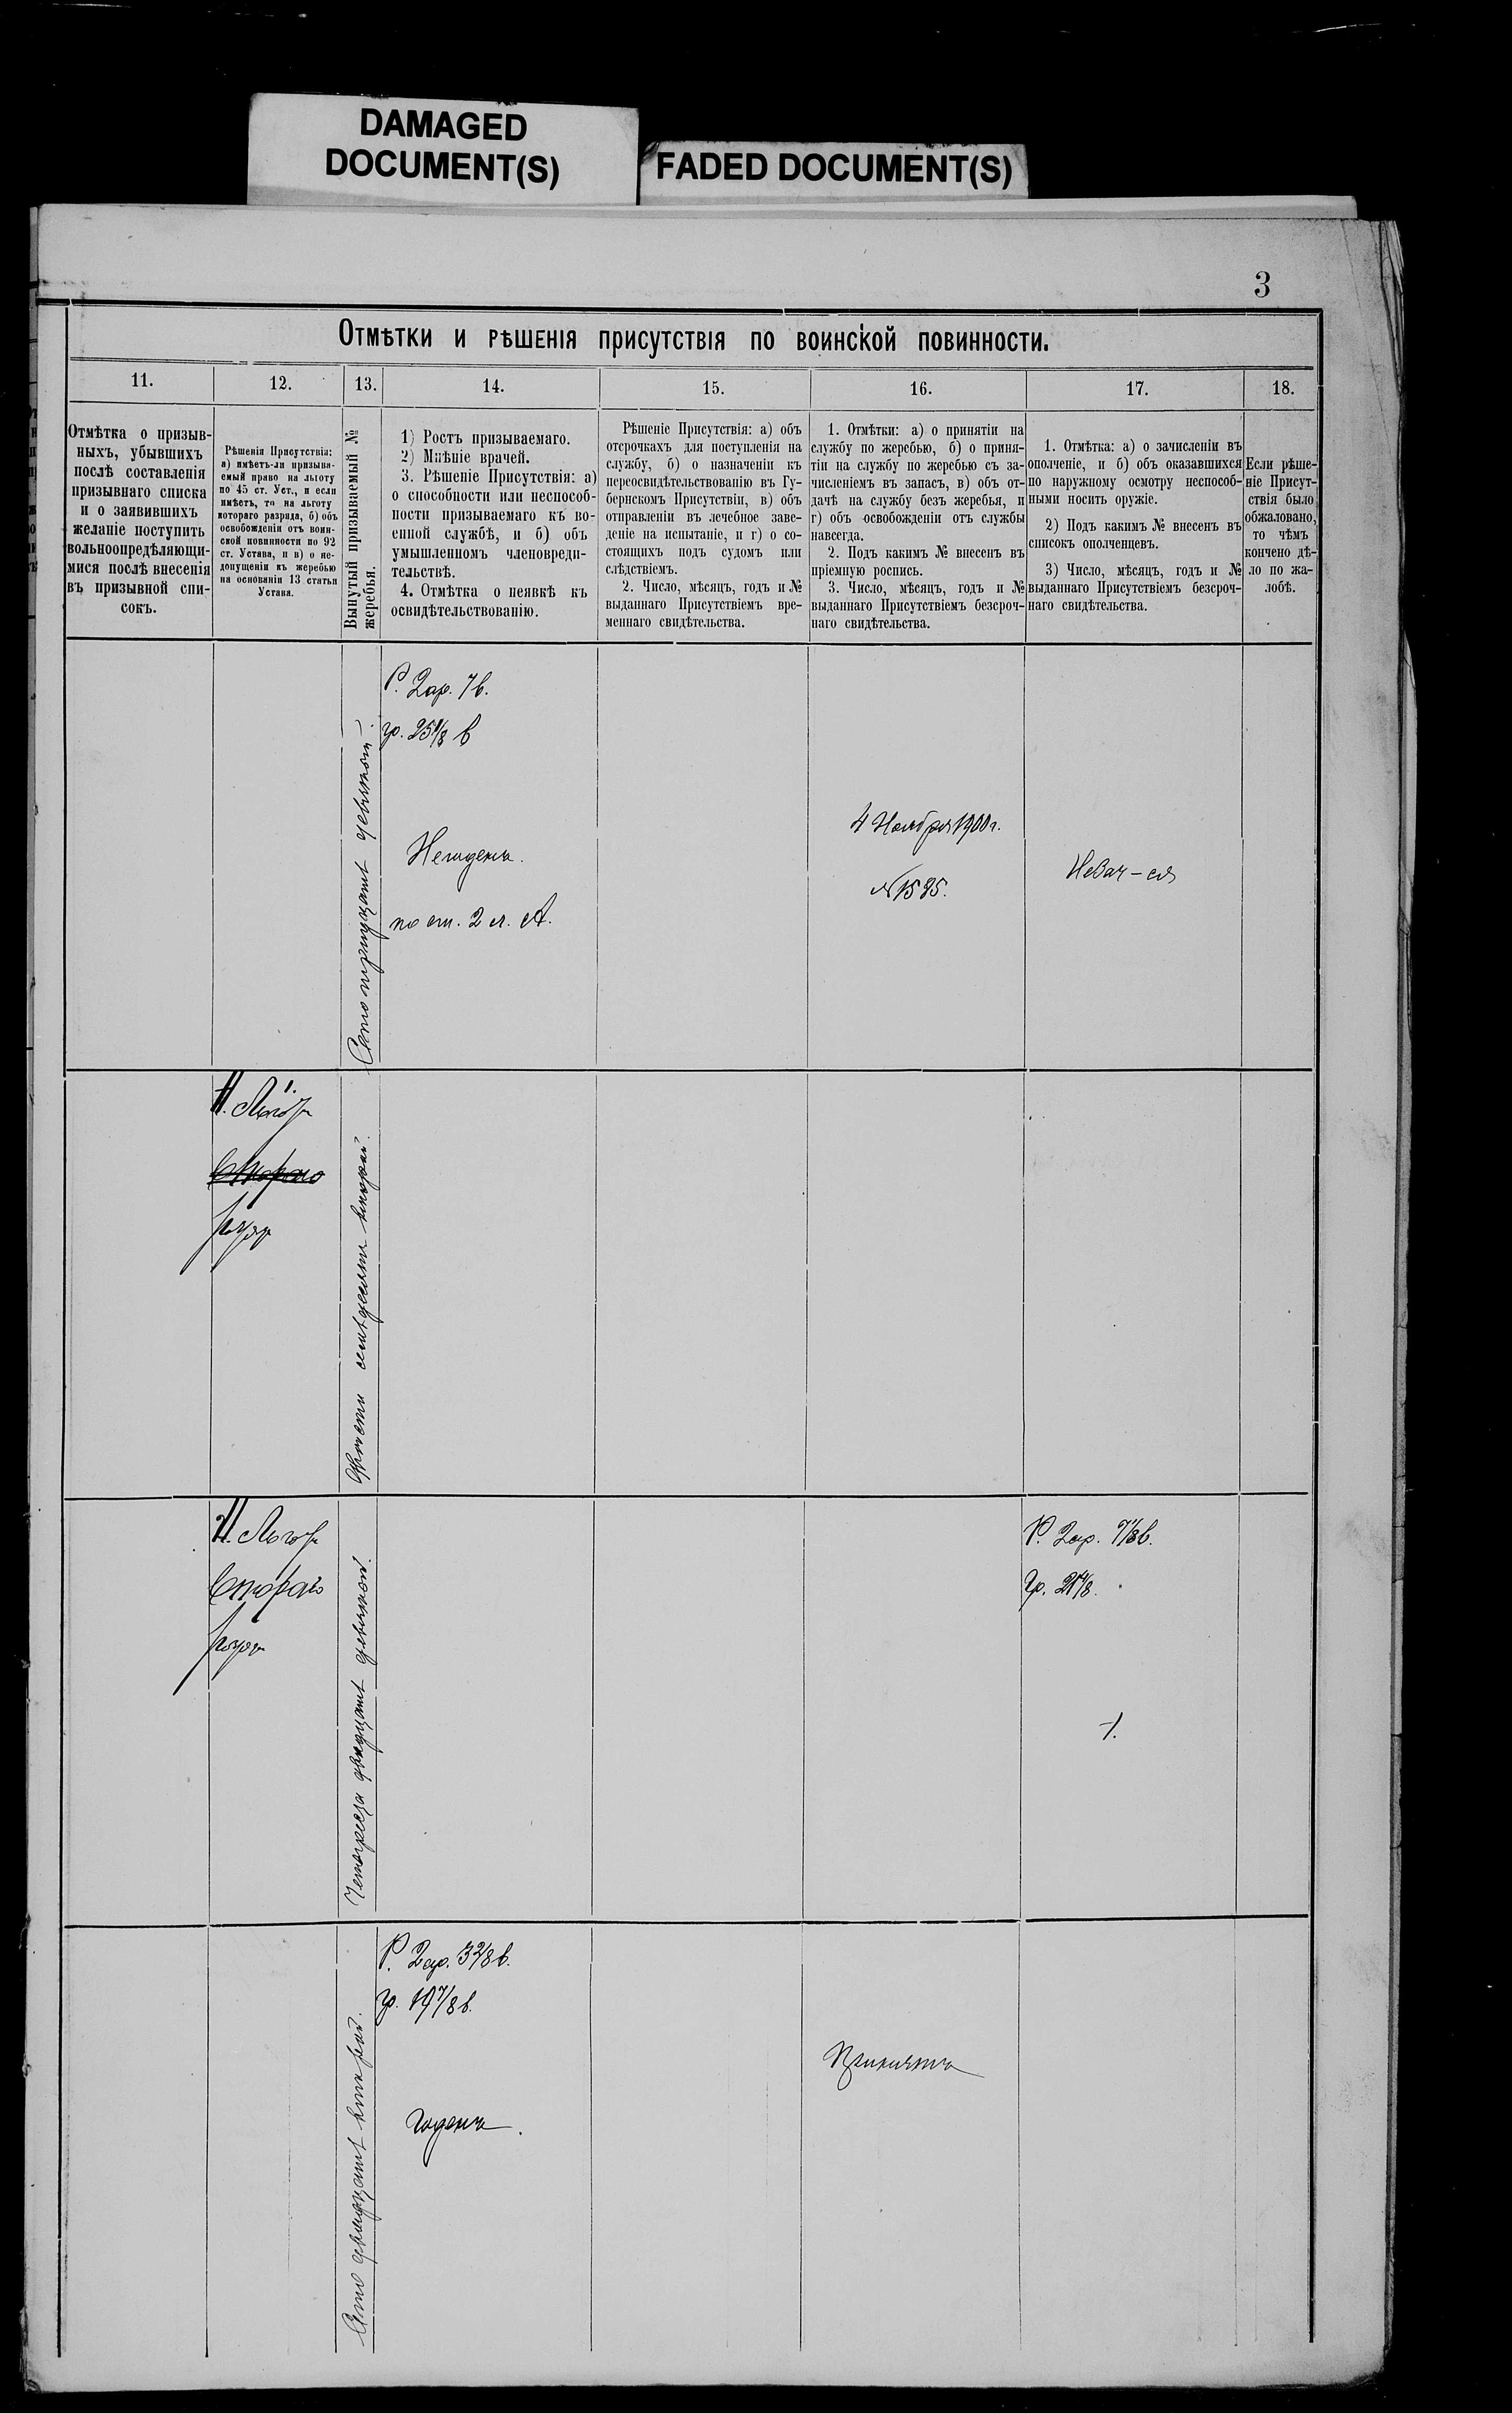 DAMAGED
DOCUMENT(S)
FADED DOCUMENT(S)
3
Отмѣтки и рѣшенія присутствія по воинской повинности.
11.
12.
13.
14.
15.
16.
17.
18.
Отмѣтка о призыв-
ныхъ, убывшихъ
послѣ составленія
призывнаго списка
и о заявившихъ
желаніе поступить
вольноопредѣляющи-
мися послѣ внесенія
въ призывной спи-
сокъ.
Рѣшенія Присутствія:
а) имѣетъ-ли призыва-
емый право на льготу
по 45 ст. Уст., и если
имѣетъ, то на льготу
котораго разряда, б) объ
освобожденіи отъ воин-
ской повинности по 92
ст. Устава, и в) о не-
допущеніи къ жеребью
на основаніи 13 статьи
Устава.
Вынутый призываемый №
жеребья.
1) Ростъ призываемаго.
2) Мнѣніе врачей.
3. Рѣшеніе Присутствія: а)
о способности или неспособ-
ности призываемаго къ во-
енной службѣ, и б) объ
умышленномъ членовреди-
тельствѣ.
4. Отмѣтка о неявкѣ къ
освидѣтельствованію.
Рѣшеніе Присутствія: а) объ
отсрочкахъ для поступленія на
службу, б) о назначеніи къ
переосвидѣтельствованію въ Гу-
бернскомъ Присутствіи, в) объ
отправленіи въ лечебное заве-
деніе на испытаніе, и г) о со-
стоящихъ подъ судомъ или
слѣдствіемъ.
2. Число, мѣсяцъ, годъ и №
выданнаго Присутствіемъ вре-
меннаго свидѣтельства.
1. Отмѣтки: а) о принятіи на
службу по жеребью, б) о приня-
тіи на службу по жеребью съ за-
численіемъ въ запасъ, в) объ от-
дачѣ на службу безъ жеребья, и
г) объ освобожденіи отъ службы
навсегда.
2. Подъ какимъ № внесенъ въ
пріемную роспись.
3. Число, мѣсяцъ, годъ и №
выданнаго Присутствіемъ безсроч-
наго свидѣтельства.
1. Отмѣтка: а) о зачисленіи въ
ополченіе, и б) объ оказавшихся
по наружному осмотру неспособ-
ными носить оружіе.
2) Подъ какимъ № внесенъ въ
списокъ ополченцевъ.
3) Число, мѣсяцъ, годъ и №
выданнаго Присутствіемъ безсроч-
наго свидѣтельства.
Если рѣше-
ніе Присут-
ствія было
обжаловано,
то чѣмъ
кончено дѣ-
ло по жа-
лобѣ.
Сто тридцать девятый.
Р. 2 ар. 7 в.
гр. 25 1/8 в
Негоденъ.
по ст. 2 л. А.
4 Ноября 1900 г.
№ 1595.
Н. Льгот
Втораго
разр
Двѣсти семьдесятъ второй.
Н. Льгот
Втораго
разр
Четыреста двадцать девятый.
Р. 2 ар. 7/8 в.
Гр. 21 4/8.
Сто двадцать второй.
Р. 2 ар. 3 2/8 в.
гр. 19 7/8 в.
Годенъ.
Принятъ